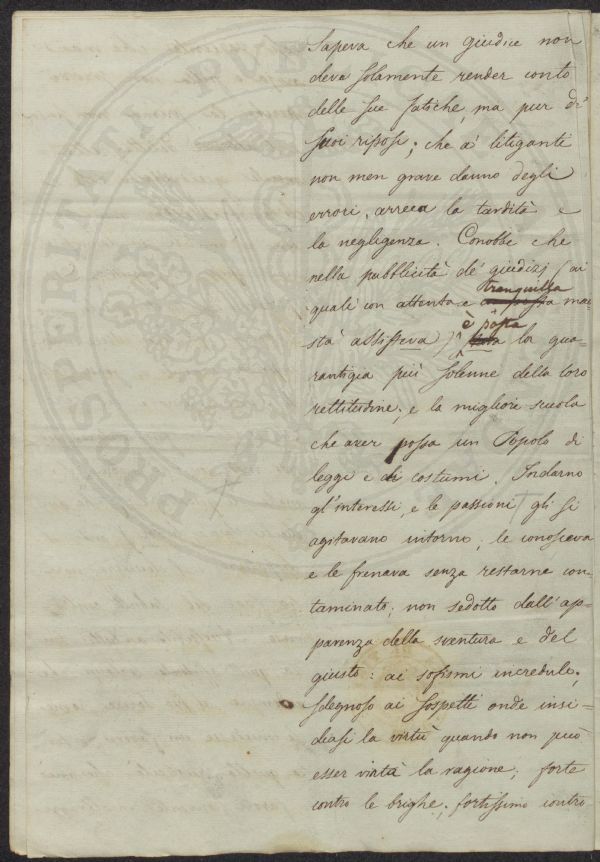 Sapeva che un giudice non
deva solamente render conto
delle sue fatiche, ma pur di
suoi riposi; che a' litiganti
non men grave danno degli
errori, arreca la tardità e
la negligenza. Conobbe che
nella pubblicità de' giudizj (ai
tranquilla
quali con attenta e ma-
è posta
stà assisteva) la gua-
rantigia più solenne della loro
rettitudine; e la migliore scuola
che aver possa un Popolo di
leggi e di costumi. Indarno
gl'interessi, e le passioni gli si
agitavano intorno; le conosceva
e le frenava senza restarne con-
taminato; non sedotto dall'ap-
parenza della sventura e del
giusto: ai sofismi incredulo;
sdegnoso ai sospetti onde insi-
diasi la virtù quando non può
esser vinta la ragione; forte
contro le brighe; fortissimo contro
PROSPERITATI PUB